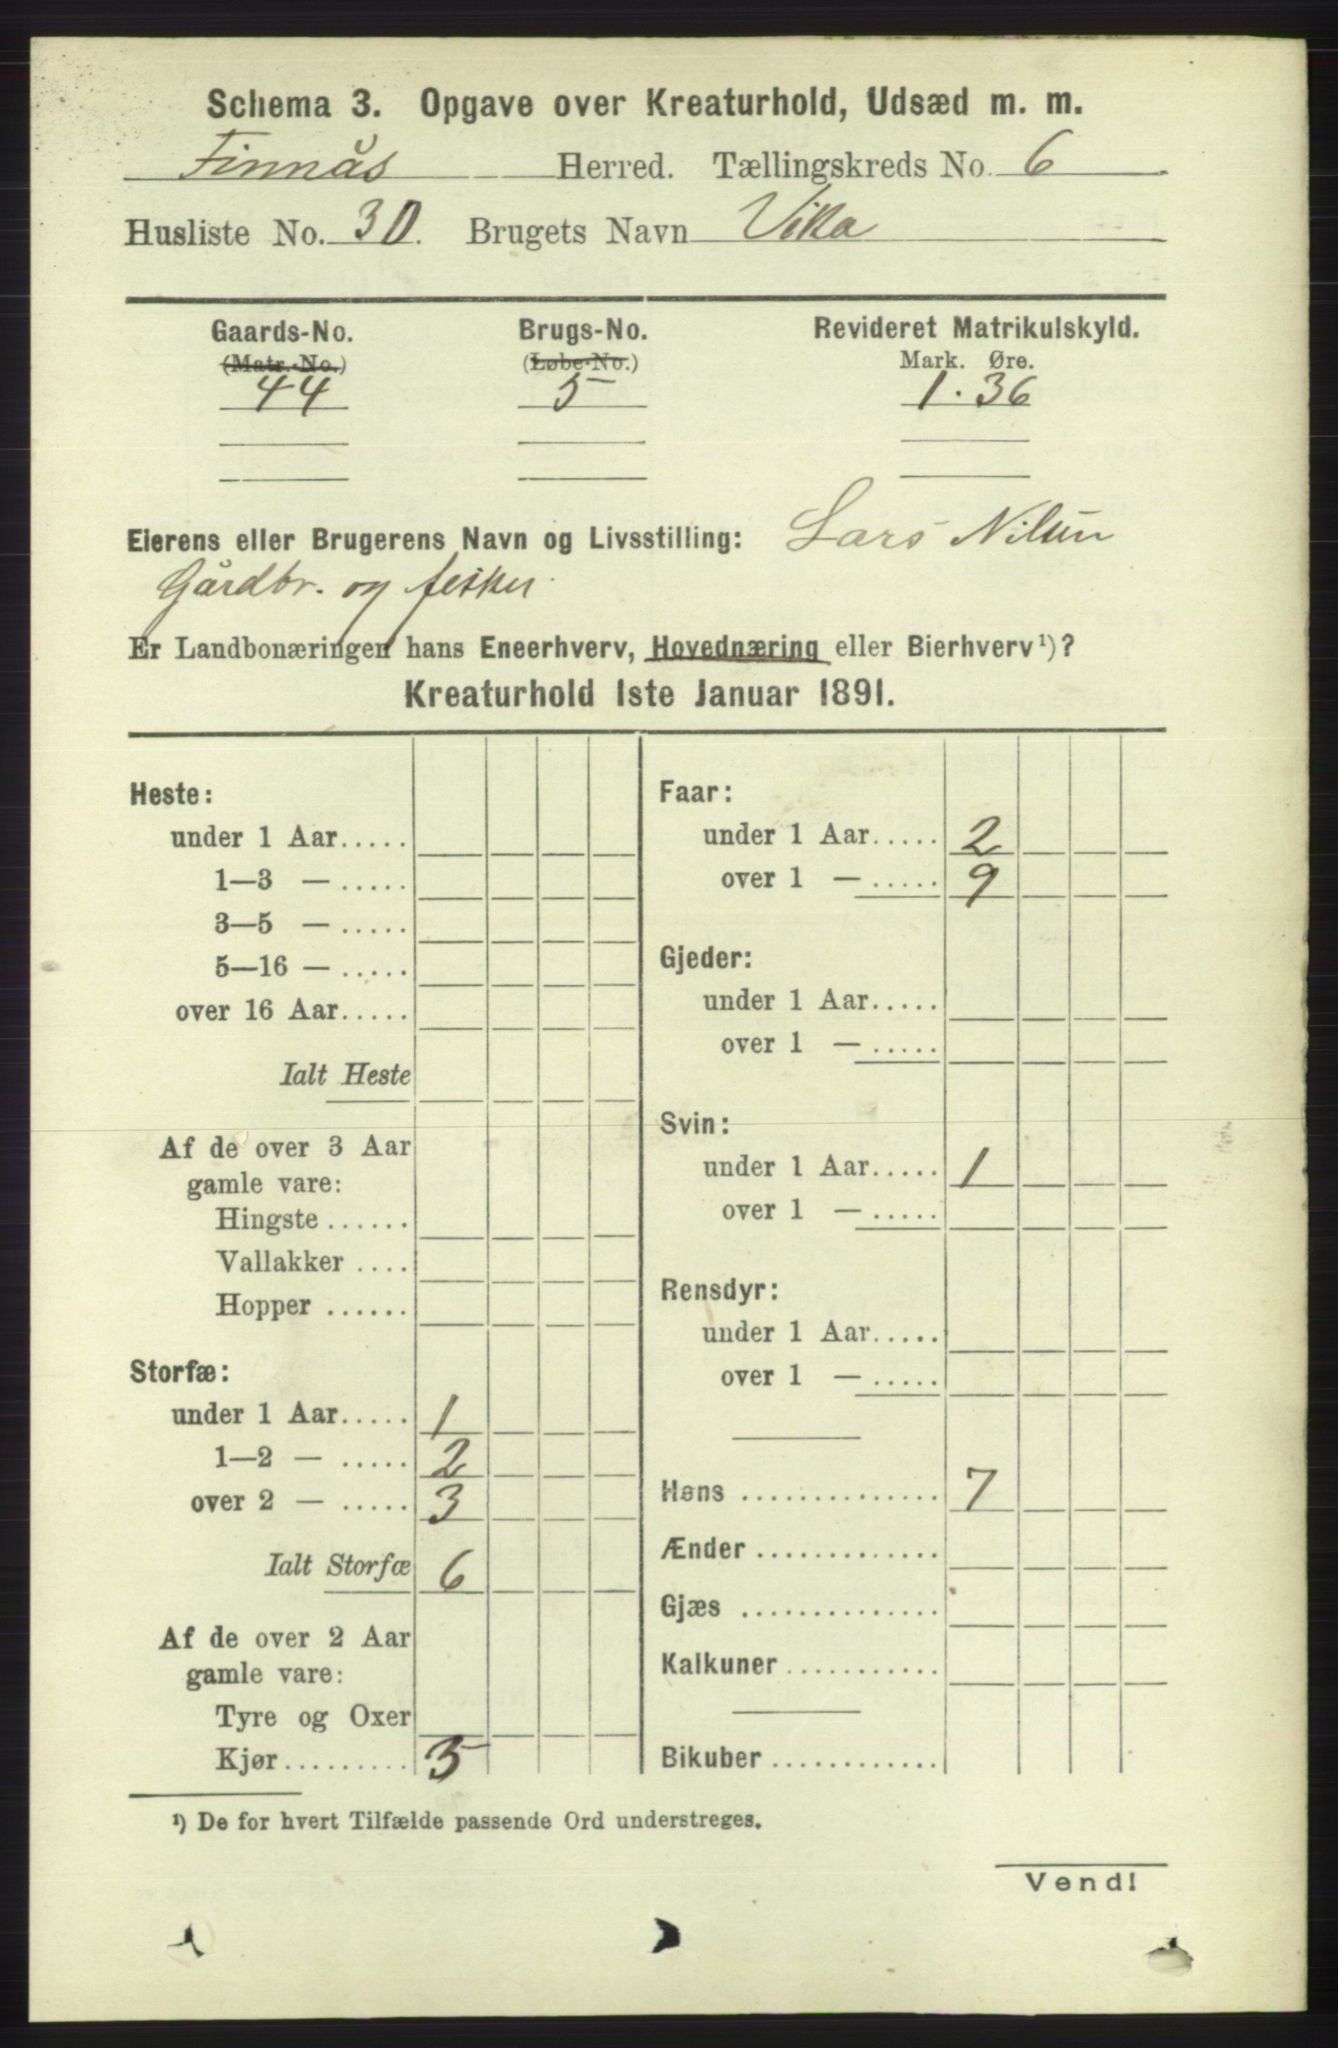 Schema 3. Opgave over Kreaturhold, Udsæd m. m.
Finnås Herred. Tællingskreds No. 6
Husliste No. 30. Brugets Navn Vika
Gaards-No. Brugs-No. Revideret Matrikulskyld.
(Matr.-No.) (Løbe-No.) Mark. Øre.
44 5 1.36
Eierens eller Brugerens Navn og Livsstilling: Lars Nilsen
Gårdbr. og fisker
Er Landbonæringen hans Eneerhverv, Hovednæring eller Bierhverv¹)?
Kreaturhold 1ste Januar 1891.
Heste:
under 1 Aar.....
1—3 — .....
3—5 — .....
5—16 — .....
over 16 Aar.....
Ialt Heste
Af de over 3 Aar
gamle vare:
Hingste ......
Vallakker ....
Hopper ......
Storfæ:
under 1 Aar..... 1
1—2 — ..... 2
over 2 — ..... 3
Ialt Storfæ 6
Af de over 2 Aar
gamle vare:
Tyre og Oxer
Kjør......... 3
Faar:
under 1 Aar..... 2
over 1 — ..... 9
Gjeder:
under 1 Aar.....
over 1 — .....
Svin:
under 1 Aar..... 1
over 1 — .....
Rensdyr:
under 1 Aar.....
over 1 — .....
Høns .............. 7
Ænder .............
Gjæs ..............
Kalkuner...........
Bikuber ............
¹) De for hvert Tilfælde passende Ord understreges.
Vend!